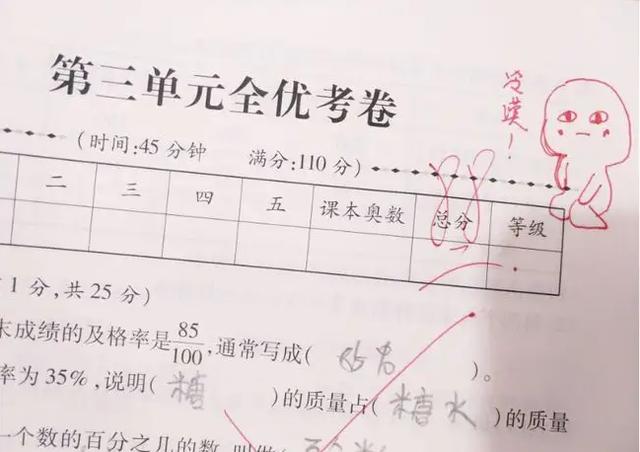 第三单元全优考卷
冷漠!
(时间:45分钟 满分:110分)
二 三 四 五 课本奥数 总分 等级
88
1分,共25分)
末成绩的及格率是85/100,通常写成( 85% )。
率为35%,说明( 糖 )的质量占( 糖水 )的质量
一个数的百分之几的数